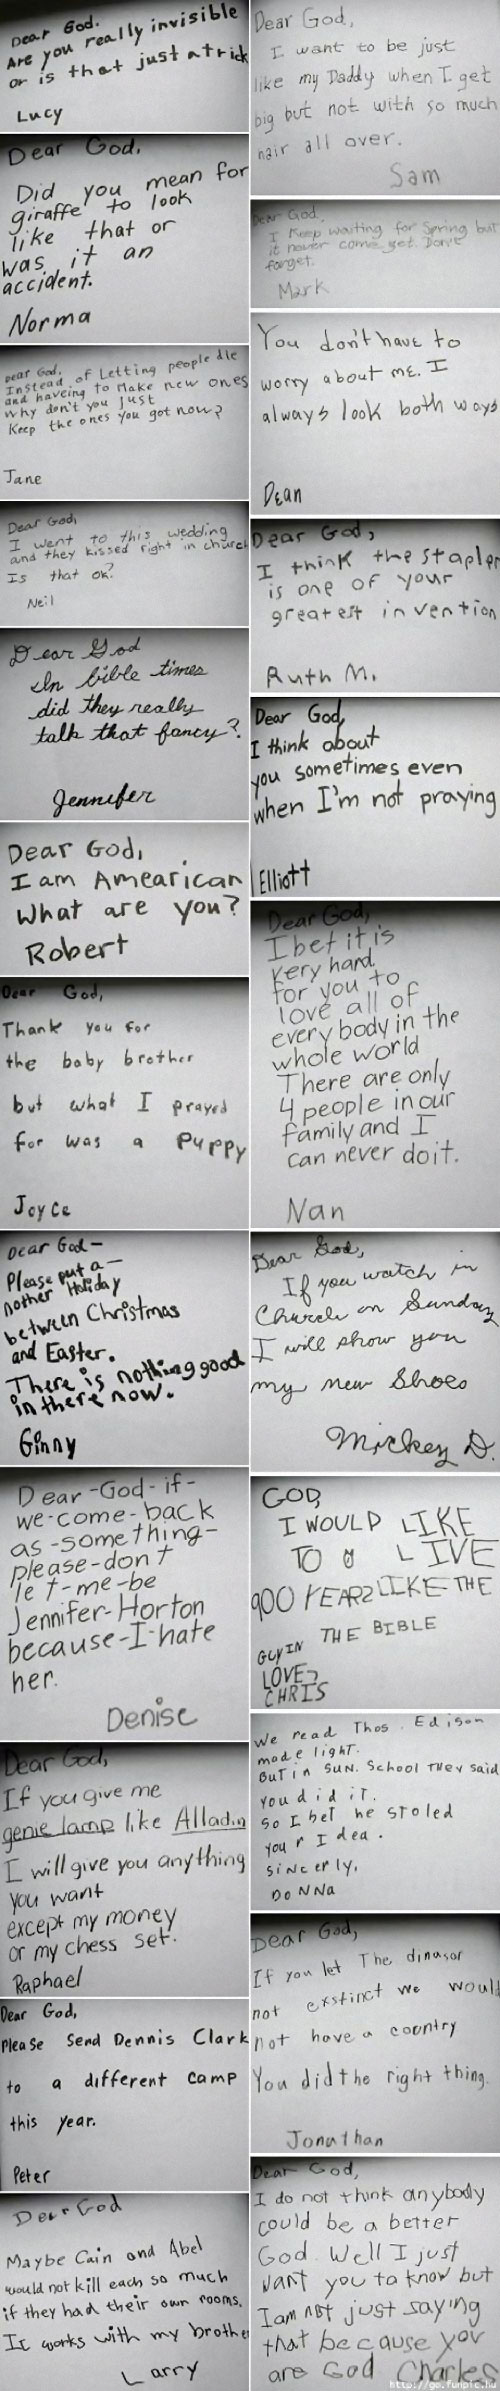 Dear God.
Are you really invisible
or is that just a trick
Lucy
Dear God,
Did you mean for
giraffe to look
like that or
was it an
accident.
Norma
Dear God,
Instead of Letting people die
and haveing to make new ones
why don't you just
keep the ones you got now?
Jane
Dear God,
I went to this wedding
and they kissed right in church
Is that ok?
Neil
Dear God
In bible times
did they really
talk that fancy?
Jennifer
Dear God,
I am Amearican
What are you?
Robert
Dear God,
Thank you for
the baby brother
but what I prayed
for was a puppy
Joyce
Dear God-
Please put a-
nother Holiday
between Christmas
and Easter.
There is nothing good
in there now.
Ginny
Dear-God-if-
we-come-back
as-something-
please-don't
let-me-be
Jennifer-Horton
because-I-hate
her.
Denise
Dear God,
If you give me
genie lamp like Alladin
I will give you anything
you want
except my money
or my chess set.
Raphael
Dear God,
Please send Dennis Clark
to a different camp
this year.
Peter
Dear God
Maybe Cain and Abel
would not kill each so much
if they had their own rooms.
It works with my brother
Larry
Dear God,
I want to be just
like my Daddy when I get
big but not with so much
hair all over.
Sam
Dear God,
I keep waiting for Spring but
it never come yet. Don't
forget.
Mark
You don't have to
worry about me. I
always look both ways
Dean
Dear God,
I think the stapler
is one of your
greatest invention
Ruth M.
Dear God,
I think about
you sometimes even
when I'm not praying
Elliott
Dear God,
I bet it is
very hard
for you to
love all of
every body in the
whole world
There are only
4 people in our
family and I
can never do it.
Nan
Dear God,
If you watch in
Church on Sunday
I will show you
my new shoes
Mickey D.
GOD,
I WOULD LIKE
TO LIVE
900 YEARS LIKE THE
GUY IN THE BIBLE
LOVE,
CHRIS
We read Thos. Edison
made light.
But in Sun. School they said
you did it.
So I bet he stoled
your Idea.
Sincerly,
Donna
Dear God,
If you let The dinasor
not exstinct we would
not have a country
You did the right thing.
Jonathan
Dear God,
I do not think anybody
could be a better
God. Well I just
want you to know but
I am not just saying
that because you
are God Charles
http://go.funpic.hu